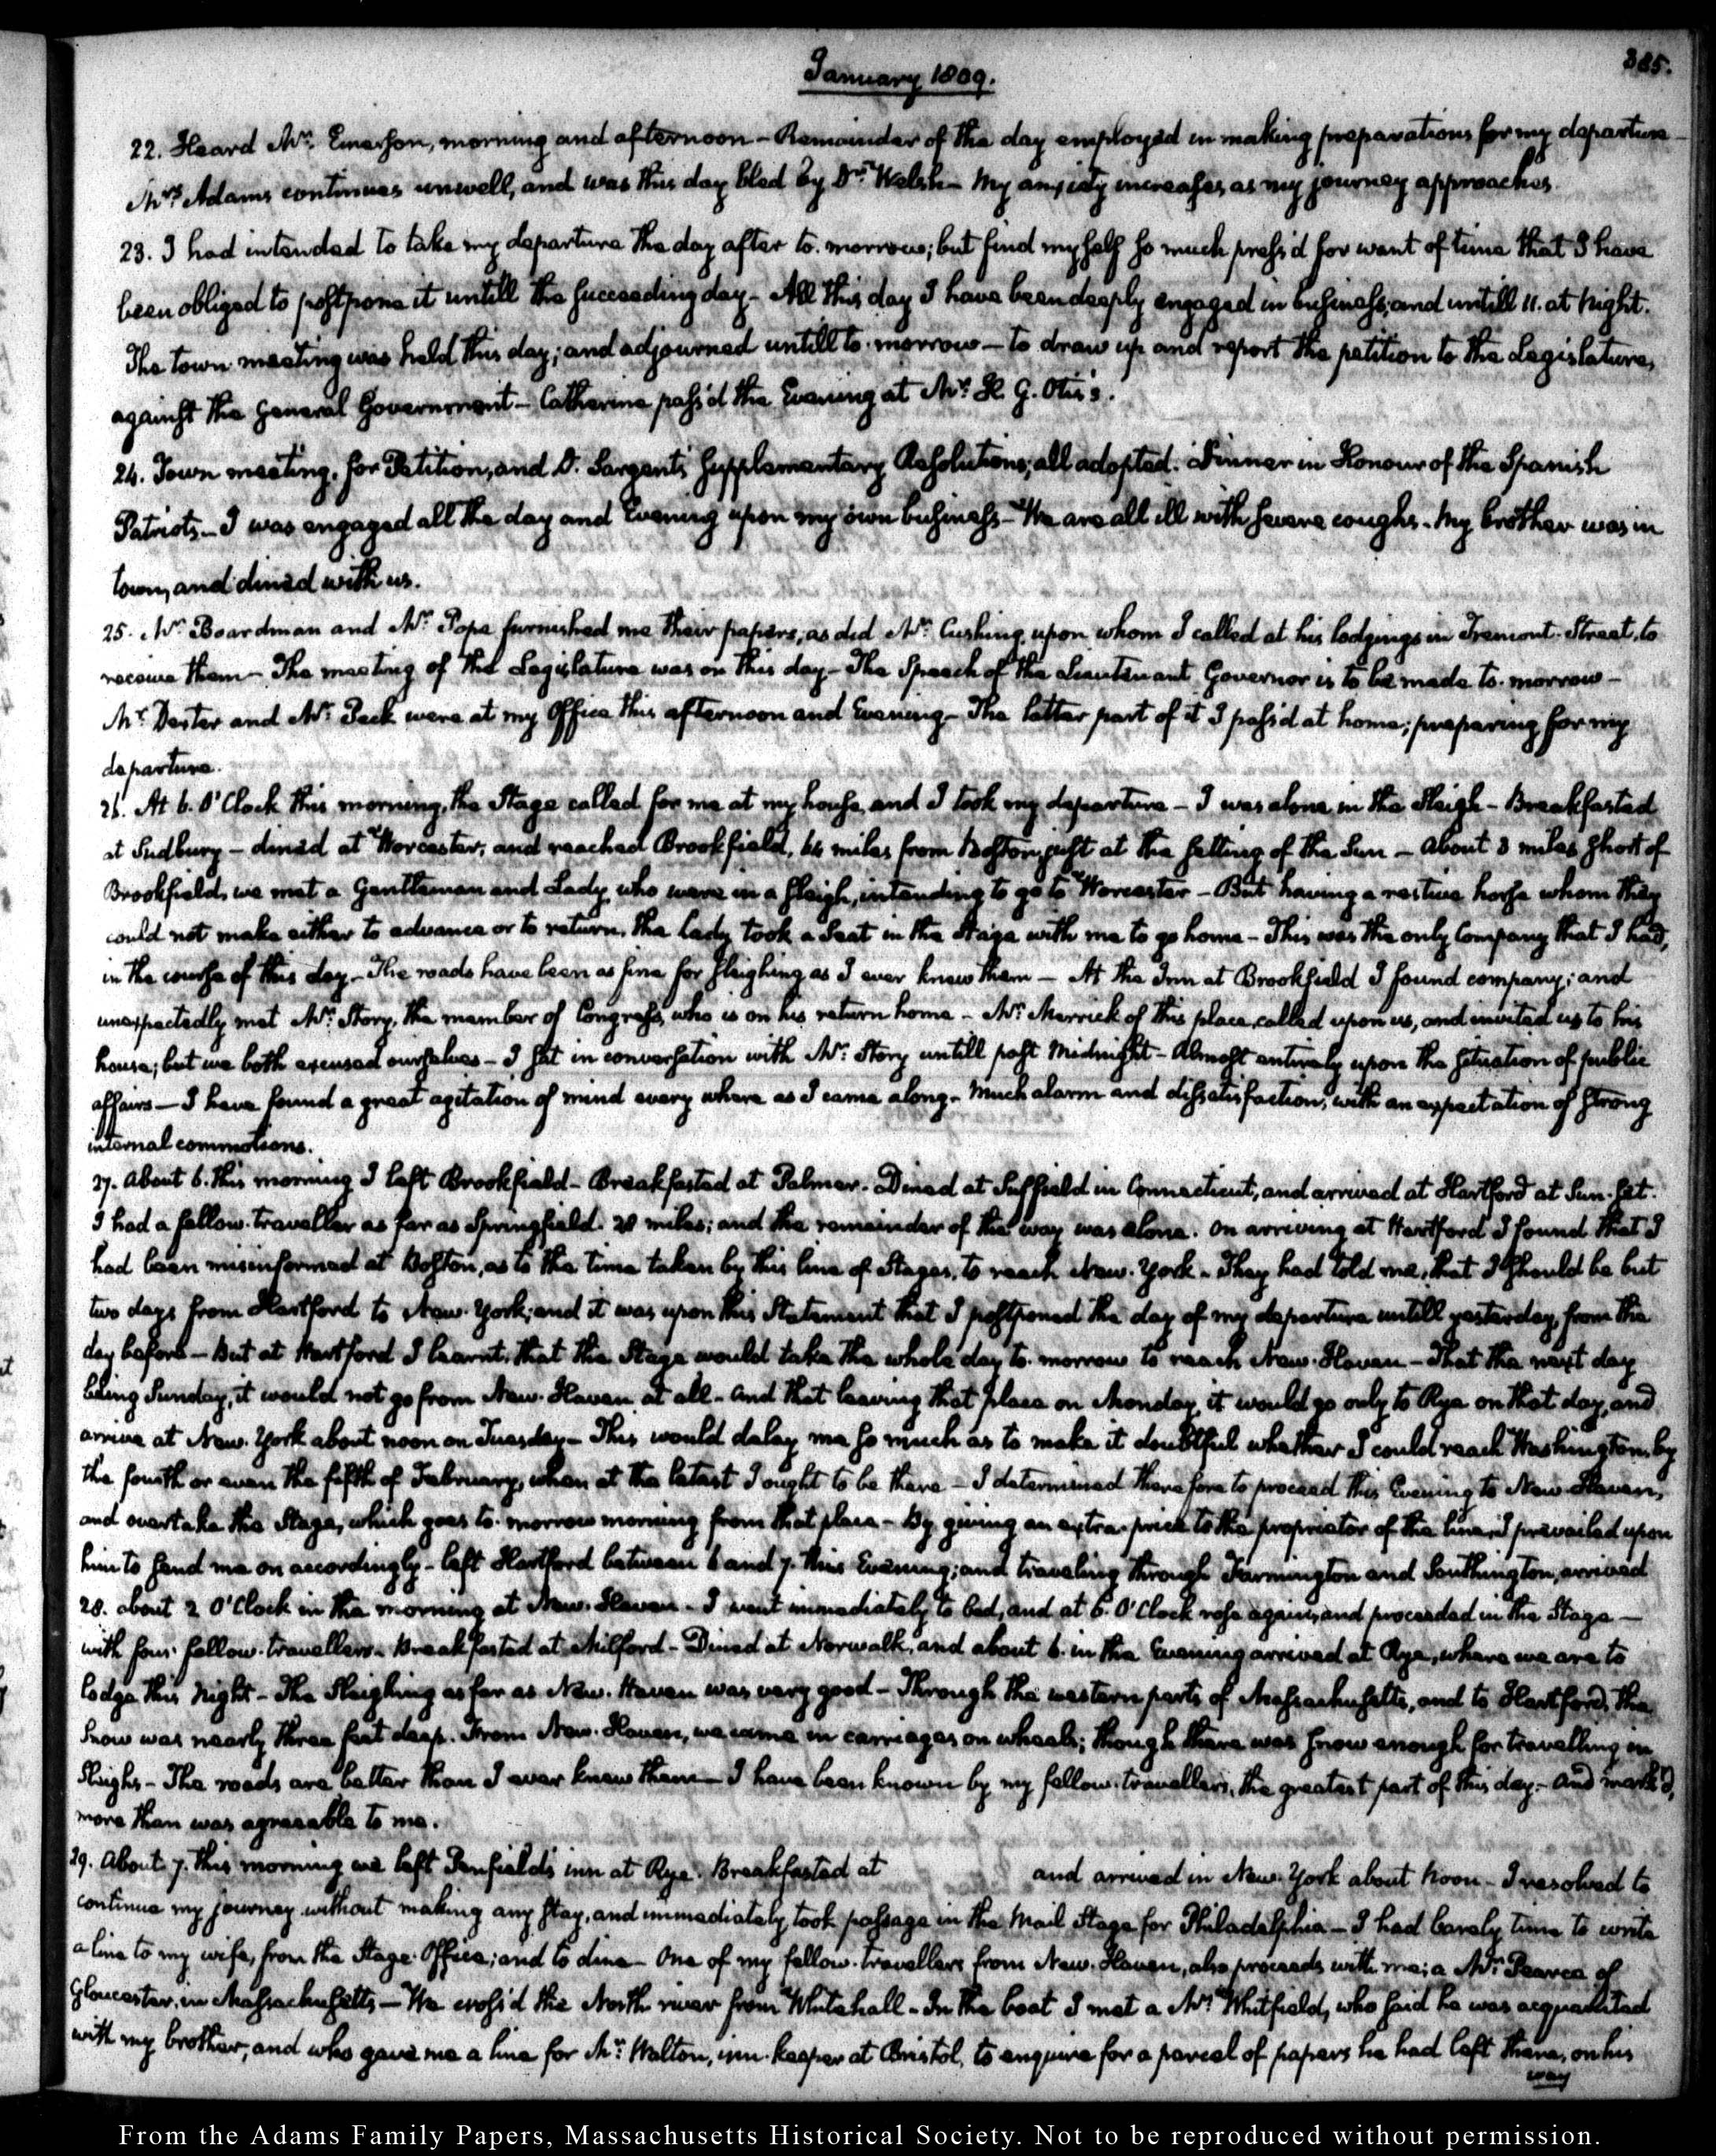 January 1809.
385.
22. Heard Mr. Emerson, morning and afternoon - Remainder of the day employed in making preparations for my departure -
Mrs. Adams continues unwell, and was this day bled by Dr. Welsh - My anxiety increases as my journey approaches.
23. I had intended to take my departure the day after to-morrow; but find myself so much press'd for want of time that I have
been obliged to postpone it untill the succeeding day - All this day I have been deeply engaged in business, and untill 11. at Night.
The town meeting was held this day; and adjourned untill to-morrow - to draw up and report the petition to the Legislature,
against the General Government - Catherine pass'd the Evening at Mr. H. G. Otis's.
24. Town meeting, for Petition, and D. Sargent's supplementary Resolutions; all adopted. Dinner in Honour of the Spanish
Patriots - I was engaged all the day and Evening upon my own business - We are all ill with severe coughs - My brother was in
town, and dined with us.
25. Mr. Boardman and Mr. Pope furnished me their papers, as did Mr. Cushing, upon whom I called at his lodgings in Tremont-Street, to
receive them - The meeting of the Legislature was on this day - The Speech of the Lieutenant Governor is to be made to-morrow -
Mr. Dexter and Mr. Peck were at my Office this afternoon and Evening - The latter part of it I pass'd at home; preparing for my
departure.
26. At 6. O'Clock this morning, the Stage called for me at my house, and I took my departure - I was alone in the Sleigh - Breakfasted
at Sudbury - dined at Worcester, and reached Brookfield, 64 miles from Boston, just at the setting of the Sun - About 3 miles short of
Brookfield, we met a Gentleman and Lady, who were in a sleigh, intending to go to Worcester - But having a restive horse whom they
could not make either to advance or to return, the lady took a Seat in the Stage with me to go home - This was the only Company that I had,
in the course of this day - The roads have been as fine for sleighing as I ever knew them - At the Inn at Brookfield I found company; and
unexpectedly met Mr. Story, the member of Congress, who is on his return home - Mr. Merrick of this place, called upon us, and invited us to his
house; but we both excused ourselves - I sat in conversation with Mr. Story untill past Midnight - Almost entirely upon the situation of public
affairs - I have found a great agitation of mind every where as I came along - Much alarm and dissatisfaction, with an expectation of strong
internal commotions.
27. About 6. this morning I left Brookfield - Breakfasted at Palmer - Dined at Suffield in Connecticut, and arrived at Hartford at Sun-set.
I had a fellow-traveller as far as Springfield. 28 miles; and the remainder of the way was alone. On arriving at Hartford I found that I
had been misinformed at Boston, as to the time taken by this line of Stages, to reach New-York - They had told me, that I should be but
two days from Hartford to New-York; and it was upon this Statement that I postponed the day of my departure untill yesterday, from the
day before - But at Hartford I learnt, that the Stage would take the whole day to-morrow to reach New-Haven - That the next day
being Sunday, it would not go from New-Haven at all - and that leaving that place on Monday it would go only to Rye on that day, and
arrive at New-York about noon on Tuesday - This would delay me so much as to make it doubtful whether I could reach Washington by
the fourth or even the fifth of February, when at the latest I ought to be there - I determined therefore to proceed this Evening to New-Haven,
and overtake the Stage, which goes to-morrow morning from that place - By giving an extra-price to the proprietor of the line, I prevailed upon
him to send me on accordingly - left Hartford between 6 and 7. this Evening; and traveling through Farmington and Southington, arrived
28. about 2 O'Clock in the morning at New-Haven - I went immediately to bed, and at 6. O'Clock rose again, and proceeded in the Stage -
with four fellow-travellers - Breakfasted at Milford - Dined at Norwalk, and about 6. in the Evening arrived at Rye, where we are to
lodge this Night - The Sleighing as far as New-Haven was very good - Through the western parts of Massachusetts, and to Hartford, the
Snow was nearly three feet deep. From New-Haven, we came in carriages on wheels; though there was snow enough for travelling in
Sleighs - The roads are better than I ever knew them - I have been known by my fellow-travellers, the greatest part of this day - And mark'd,
more than was agreeable to me.
29. About 7. this morning we left Penfield's inn at Rye. Breakfasted at and arrived in New-York about Noon - I resolved to
continue my journey without making any stay, and immediately took passage in the Mail Stage for Philadelphia - I had barely time to write
a line to my wife, from the Stage-Office; and to dine - One of my fellow-travellers from New-Haven, also proceeds with me; a Mr. Pearce of
Gloucester, in Massachusetts - We cross'd the North river from Whitehall - In the boat I met a Mr. Whitfield, who said he was acquainted
with my brother, and who gave me a line for Mr. Walton, inn-keeper at Bristol, to enquire for a parcel of papers he had left there, on his
way
From the Adams Family Papers, Massachusetts Historical Society. Not to be reproduced without permission.